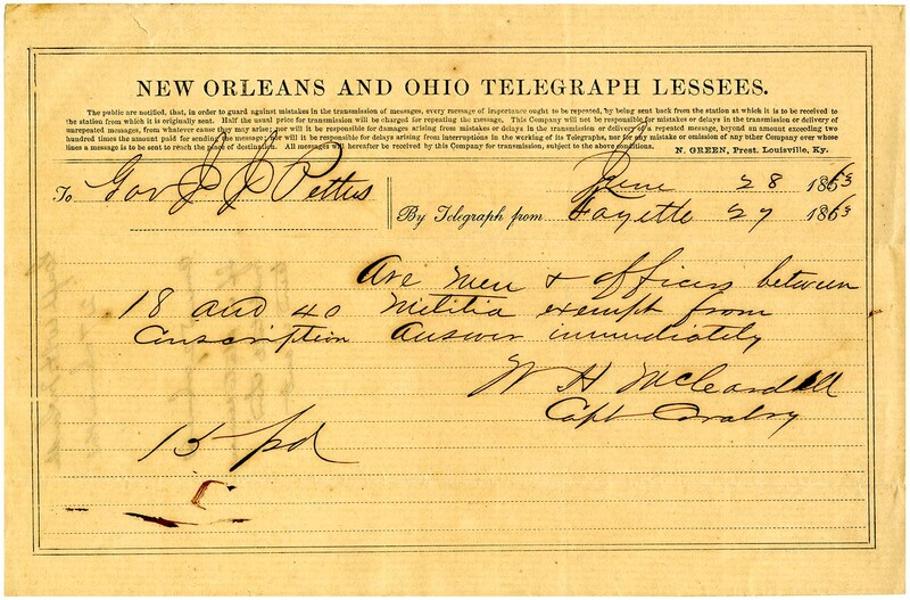 NEW ORLEANS AND OHIO TELEGRAPH LESSEES.
The public are notified, that, in order to guard against mistakes in the transmission of messages, every message of importance ought to be repeated, by being sent back from the station at which it is to be received to
the station from which it is originally sent. Half the usual price for transmission will be charged for repeating the message. This Company will not be responsible for mistakes or delays in the transmission or delivery of
unrepeated messages, from whatever cause they may arise; nor will it be responsible for damages arising from mistakes or delays in the transmission or delivery of a repeated message, beyond an amount exceeding two
hundred times the amount paid for sending the message; nor will it be responsible for delays arising from interruptions in the working of its Telegraphs, nor for any mistake or omission of any other Company over whose
lines a message is to be sent to reach the place of destination. All messages will hereafter be received by this Company for transmission, subject to the above conditions.
N. GREEN, Prest. Louisville, Ky.
To Gov J J Pettus
June 28 1863
By Telegraph from Fayette 27 1863
Are men & officers between
18 and 40 Militia exempt from
Conscription Answer immediately
W H McCeardell
Capt Cavalry
15 pd